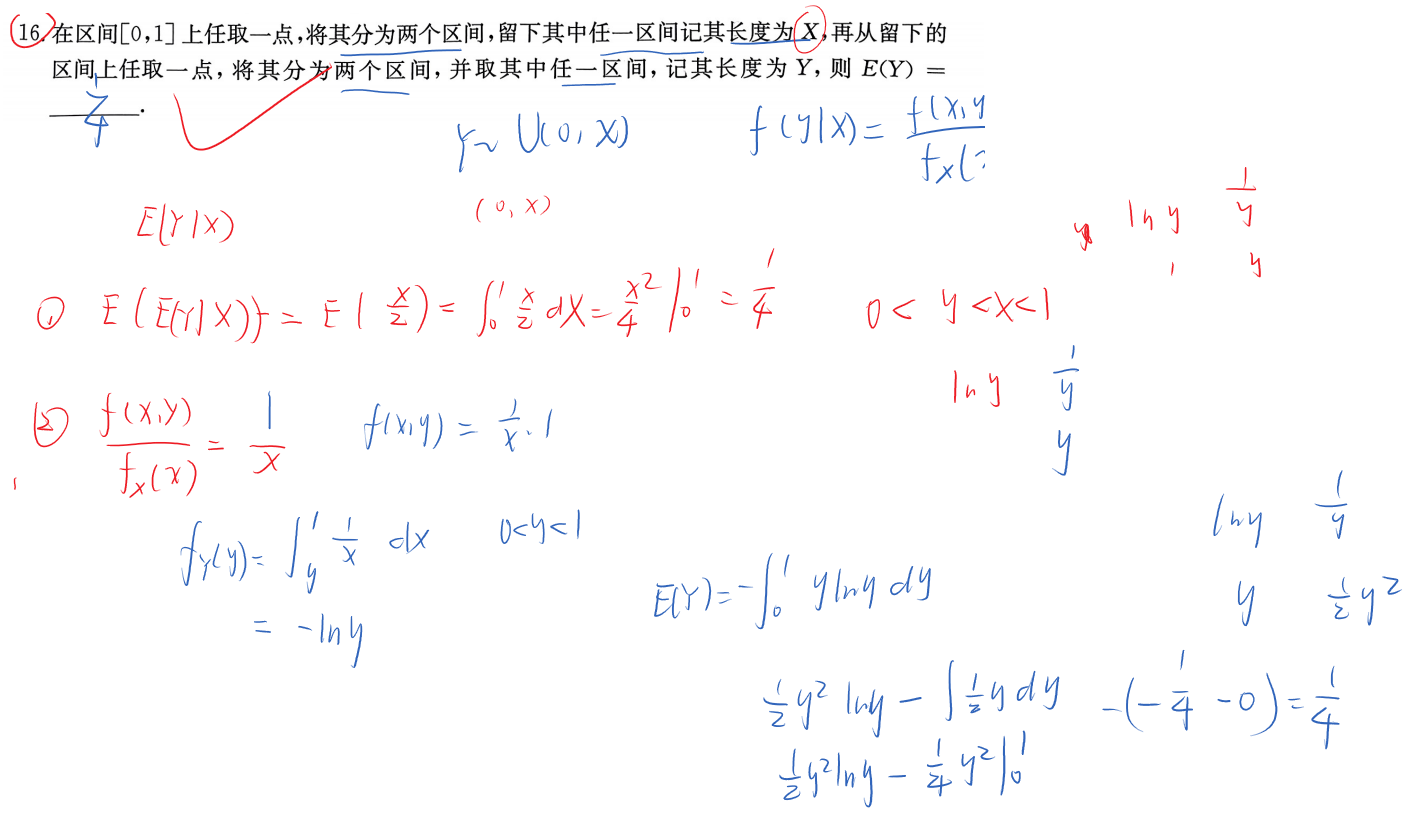 16. 在区间[0,1]上任取一点,将其分为两个区间,留下其中任一区间记其长度为 X,再从留下的
区间上任取一点,将其分为两个区间,并取其中任一区间,记其长度为 Y,则 E(Y) =
1/4 .
Y~ U(0, X) f(y|x) = f(x,y / f_X(
E(Y|X) (0, x) ln y 1/y
1 y
① E(E(Y|X)) = E(x/2) = ∫₀¹ x/2 dx = x²/4 |₀¹ = 1/4 0 < y < x < 1
ln y 1/y
y
② f(x,y)/f_X(x) = 1/x f(x,y) = 1/x · 1
f_Y(y) = ∫_y^1 1/x dx 0<y<1 ln y 1/y
E(Y) = -∫₀¹ y ln y dy y 1/2 y²
= -ln y
1/2 y² ln y - ∫ 1/2 y dy -(-1/4 - 0) = 1/4
1/2 y² ln y - 1/4 y² |₀¹